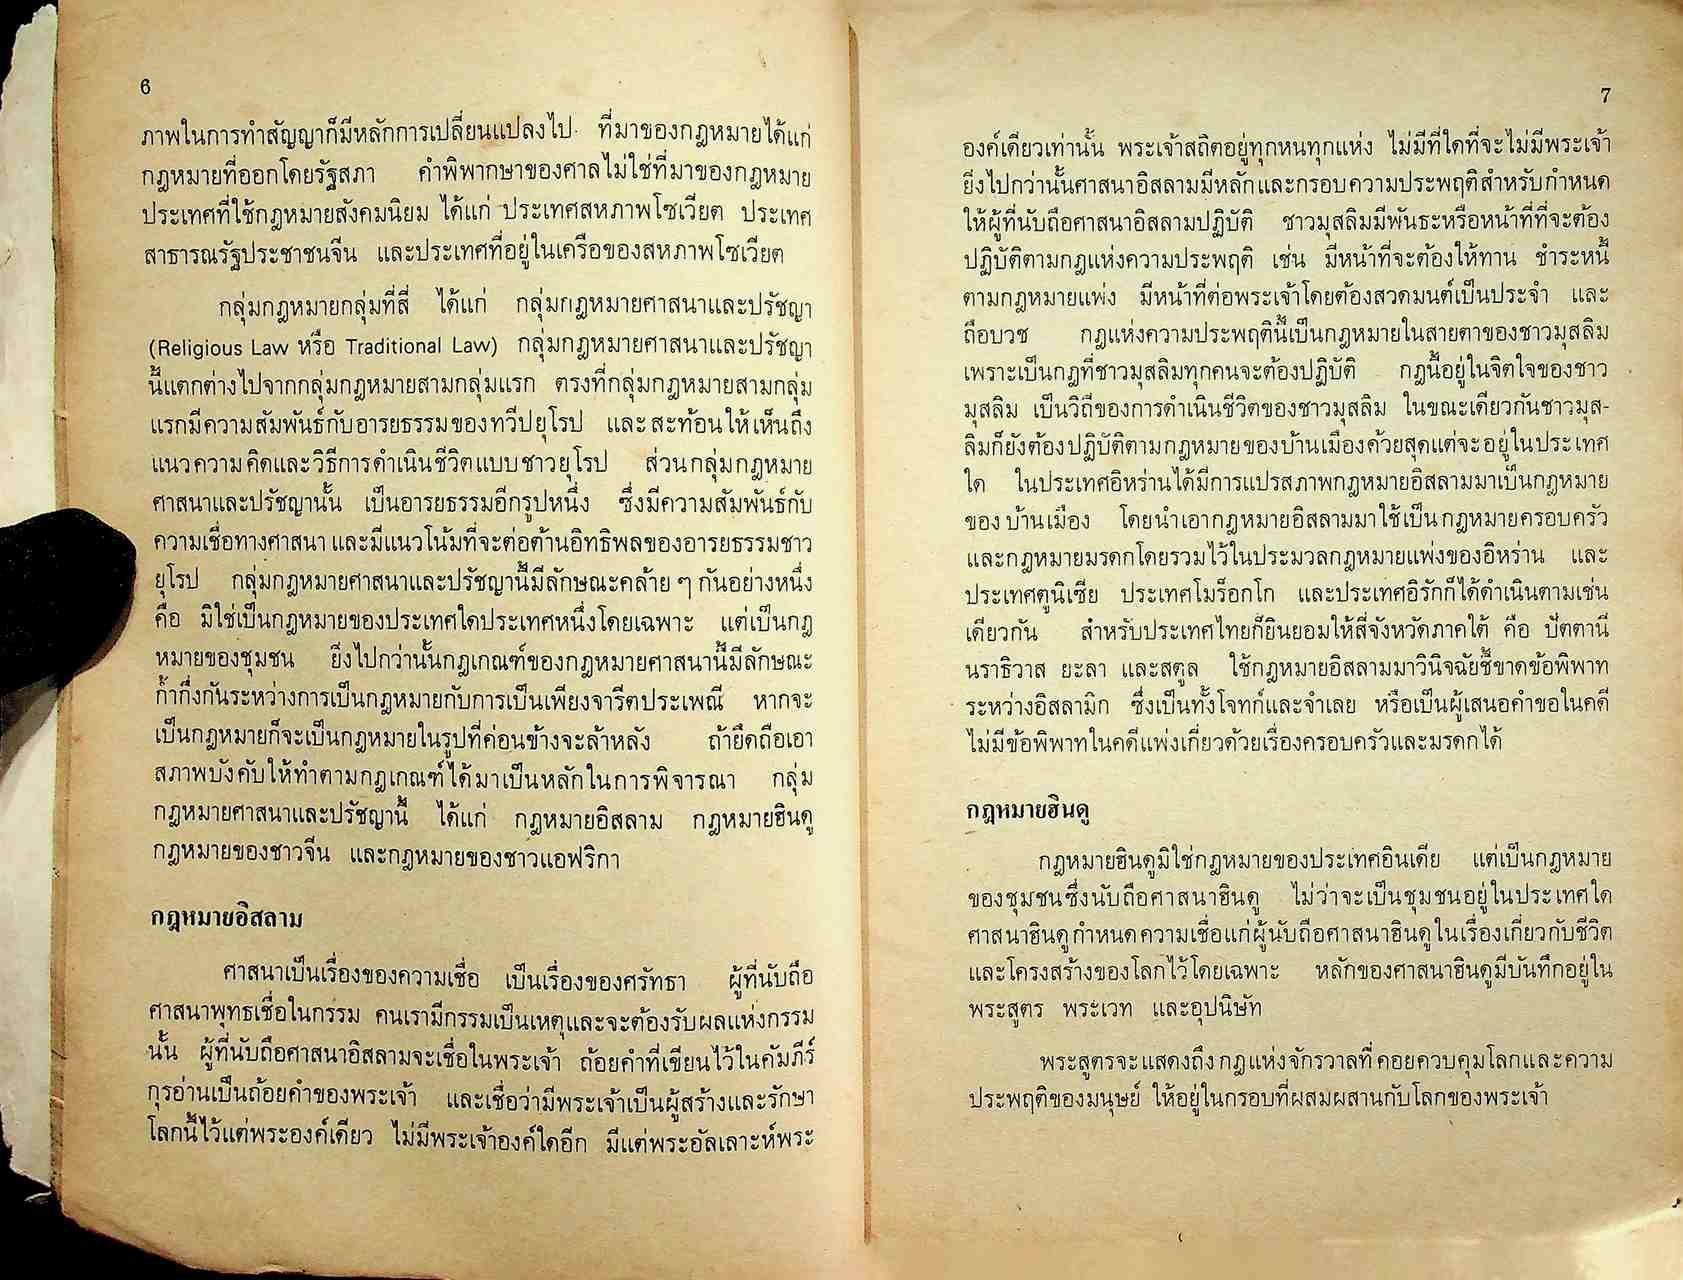 6
ภาพในการทำสัญญาก็มีหลักการเปลี่ยนแปลงไป ที่มาของกฎหมายได้แก่
กฎหมายที่ออกโดยรัฐสภา คำพิพากษาของศาลไม่ใช่ที่มาของกฎหมาย
ประเทศที่ใช้กฎหมายสังคมนิยม ได้แก่ ประเทศสหภาพโซเวียต ประเทศ
สาธารณรัฐประชาชนจีน และประเทศที่อยู่ในเครือของสหภาพโซเวียต
กลุ่มกฎหมายกลุ่มที่สี่ ได้แก่ กลุ่มกฎหมายศาสนาและปรัชญา
(Religious Law หรือ Traditional Law) กลุ่มกฎหมายศาสนาและปรัชญา
นี้แตกต่างไปจากกลุ่มกฎหมายสามกลุ่มแรก ตรงที่กลุ่มกฎหมายสามกลุ่ม
แรกมีความสัมพันธ์กับอารยธรรมของทวีปยุโรป และสะท้อนให้เห็นถึง
แนวความคิดและวิธีการดำเนินชีวิตแบบชาวยุโรป ส่วนกลุ่มกฎหมาย
ศาสนาและปรัชญานั้น เป็นอารยธรรมอีกรูปหนึ่ง ซึ่งมีความสัมพันธ์กับ
ความเชื่อทางศาสนา และมีแนวโน้มที่จะต่อต้านอิทธิพลของอารยธรรมชาว
ยุโรป กลุ่มกฎหมายศาสนาและปรัชญานี้มีลักษณะคล้าย ๆ กันอย่างหนึ่ง
คือ มิใช่เป็นกฎหมายของประเทศใดประเทศหนึ่งโดยเฉพาะ แต่เป็นกฎ
หมายของชุมชน ยิ่งไปกว่านั้นกฎเกณฑ์ของกฎหมายศาสนานี้มีลักษณะ
ก้ำกึ่งกันระหว่างการเป็นกฎหมายกับการเป็นเพียงจารีตประเพณี หากจะ
เป็นกฎหมายก็จะเป็นกฎหมายในรูปที่ค่อนข้างจะล้าหลัง ถ้ายึดถือเอา
สภาพบังคับให้ทำตามกฎเกณฑ์ได้มาเป็นหลักในการพิจารณา กลุ่ม
กฎหมายศาสนาและปรัชญานี้ ได้แก่ กฎหมายอิสลาม กฎหมายฮินดู
กฎหมายของชาวจีน และกฎหมายของชาวแอฟริกา
กฎหมายอิสลาม
ศาสนาเป็นเรื่องของความเชื่อ เป็นเรื่องของศรัทธา ผู้ที่นับถือ
ศาสนาพุทธเชื่อในกรรม คนเรามีกรรมเป็นเหตุและจะต้องรับผลแห่งกรรม
นั้น ผู้ที่นับถือศาสนาอิสลามจะเชื่อในพระเจ้า ถ้อยคำที่เขียนไว้ในคัมภีร์
กุรอ่านเป็นถ้อยคำของพระเจ้า และเชื่อว่ามีพระเจ้าเป็นผู้สร้างและรักษา
โลกนี้ไว้แต่พระองค์เดียว ไม่มีพระเจ้าองค์ใดอีก มีแต่พระอัลเลาะห์พระ
7
องค์เดียวเท่านั้น พระเจ้าสถิตอยู่ทุกหนทุกแห่ง ไม่มีที่ใดที่จะไม่มีพระเจ้า
ยิ่งไปกว่านั้นศาสนาอิสลามมีหลักและกรอบความประพฤติสำหรับกำหนด
ให้ผู้ที่นับถือศาสนาอิสลามปฏิบัติ ชาวมุสลิมมีพันธะหรือหน้าที่ที่จะต้อง
ปฏิบัติตามกฎแห่งความประพฤติ เช่น มีหน้าที่จะต้องให้ทาน ชำระหนี้
ตามกฎหมายแพ่ง มีหน้าที่ต่อพระเจ้าโดยต้องสวดมนต์เป็นประจำ และ
ถือบวช กฎแห่งความประพฤตินี้เป็นกฎหมายในสายตาของชาวมุสลิม
เพราะเป็นกฎที่ชาวมุสลิมทุกคนจะต้องปฏิบัติ กฎนี้อยู่ในจิตใจของชาว
มุสลิม เป็นวิถีของการดำเนินชีวิตของชาวมุสลิม ในขณะเดียวกันชาวมุส-
ลิมก็ยังต้องปฏิบัติตามกฎหมายของบ้านเมืองด้วยสุดแต่จะอยู่ในประเทศ
ใด ในประเทศอิหร่านได้มีการแปรสภาพกฎหมายอิสลามมาเป็นกฎหมาย
ของบ้านเมือง โดยนำเอากฎหมายอิสลามมาใช้เป็นกฎหมายครอบครัว
และกฎหมายมรดกโดยรวมไว้ในประมวลกฎหมายแพ่งของอิหร่าน และ
ประเทศตูนิเซีย ประเทศโมร็อกโก และประเทศอิรักก็ได้ดำเนินตามเช่น
เดียวกัน สำหรับประเทศไทยก็ยินยอมให้สี่จังหวัดภาคใต้ คือ ปัตตานี
นราธิวาส ยะลา และสตูล ใช้กฎหมายอิสลามมาวินิจฉัยชี้ขาดข้อพิพาท
ระหว่างอิสลามิก ซึ่งเป็นทั้งโจทก์และจำเลย หรือเป็นผู้เสนอคำขอในคดี
ไม่มีข้อพิพาทในคดีแพ่งเกี่ยวด้วยเรื่องครอบครัวและมรดกได้
กฎหมายฮินดู
กฎหมายฮินดูมิใช่กฎหมายของประเทศอินเดีย แต่เป็นกฎหมาย
ของชุมชนซึ่งนับถือศาสนาฮินดู ไม่ว่าจะเป็นชุมชนอยู่ในประเทศใด
ศาสนาฮินดูกำหนดความเชื่อแก่ผู้นับถือศาสนาฮินดูในเรื่องเกี่ยวกับชีวิต
และโครงสร้างของโลกไว้โดยเฉพาะ หลักของศาสนาฮินดูมีบันทึกอยู่ใน
พระสูตร พระเวท และอุปนิษัท
พระสูตรจะแสดงถึงกฎแห่งจักรวาลที่คอยควบคุมโลกและความ
ประพฤติของมนุษย์ ให้อยู่ในกรอบที่ผสมผสานกับโลกของพระเจ้า